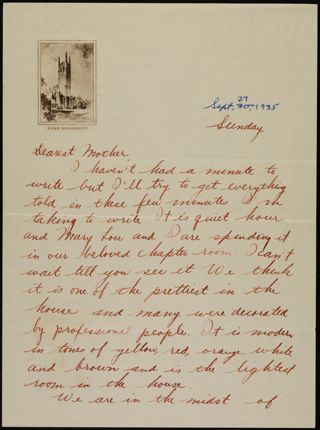 DUKE UNIVERSITY
29
Sept. 30, 1935
Sunday
Dearest Mother,
I haven't had a minute to
write but I'll try to get everything
told in these few minutes I am
taking to write. It is quiet hour
and Mary Lou and I are spending it
in our beloved chapter room. I can't
wait tell you see it. We think
it is one of the prettiest in the
house and many were decorated
by professional people. It is modern
in tones of yellow, red, orange, white
and brown and is the lightest
room in the house.
We are in the midst of